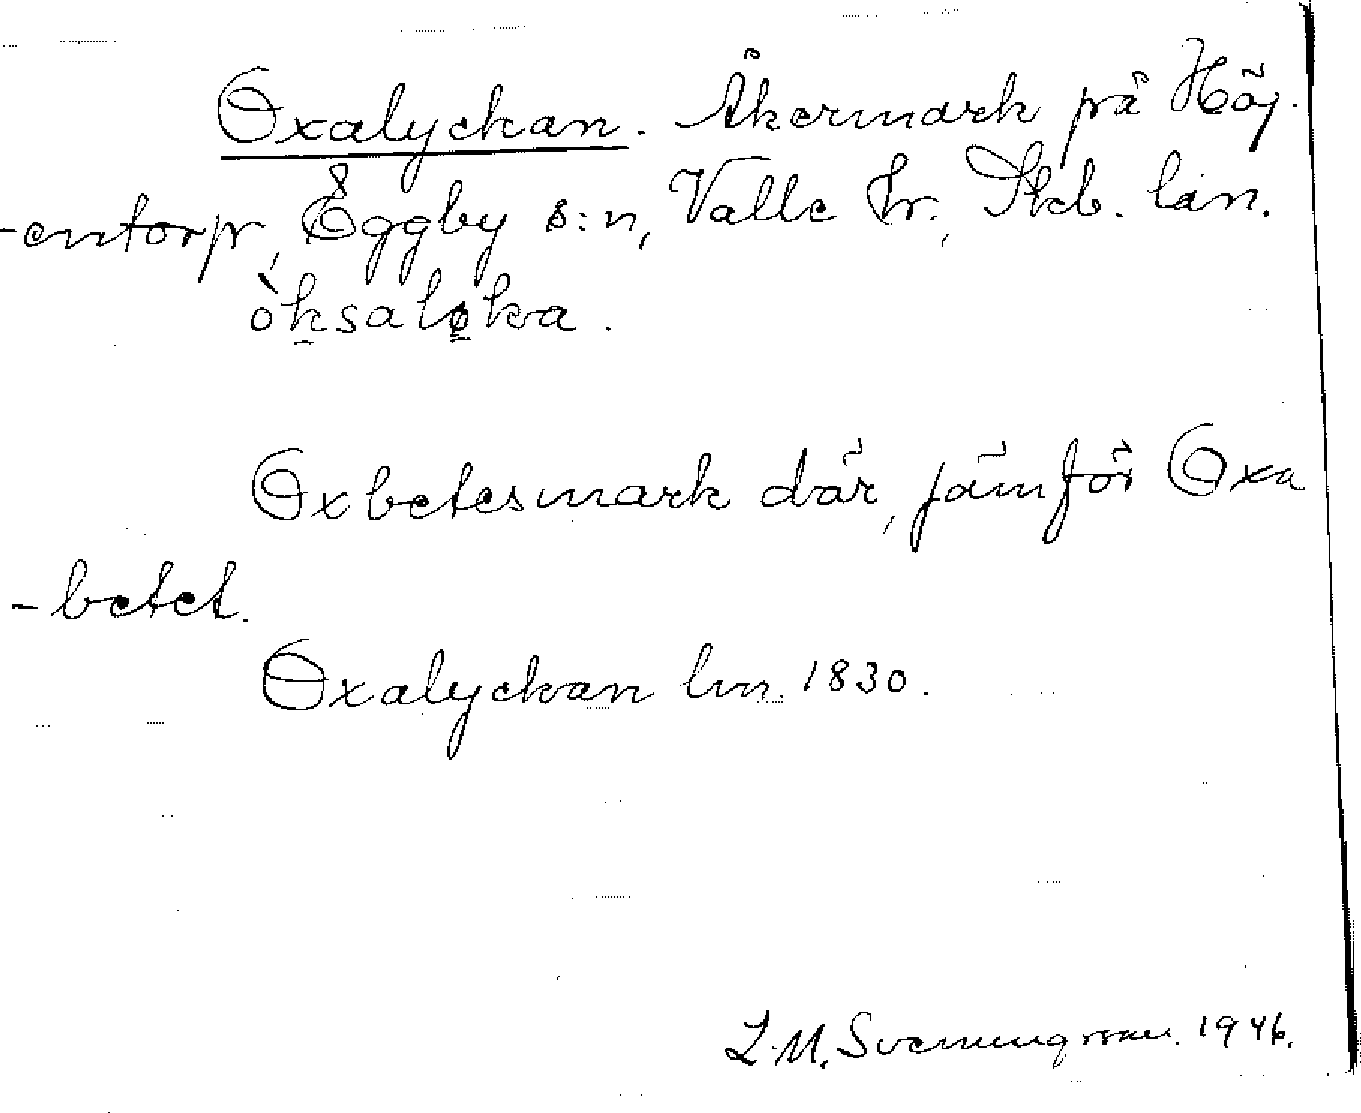 Oxalyckan. Åkermark på Höj-
-entorp, Eggby s:n, Valle hr., Skb. län.
òksaløka.
Oxbetesmark där, jämför Oxa
-betet.
Oxalyckan lm. 1830.
L.M. Svenungsson. 1946.